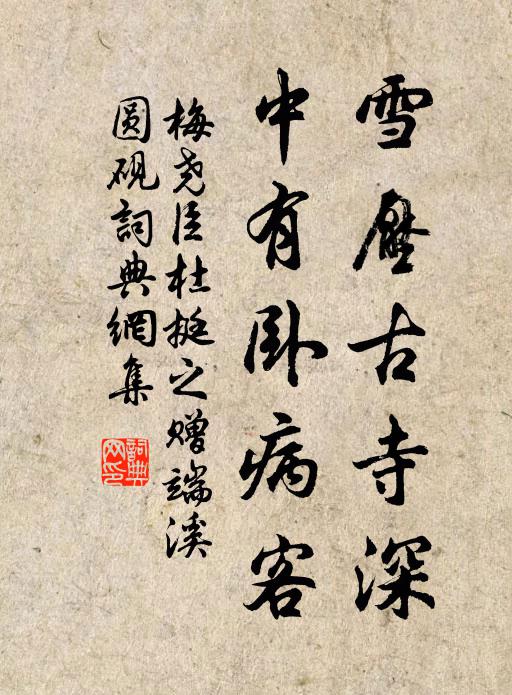 雪壓古寺深
中有卧病客
梅尧臣杜挺之赠端溪
圆砚詞典網集
詞典网印